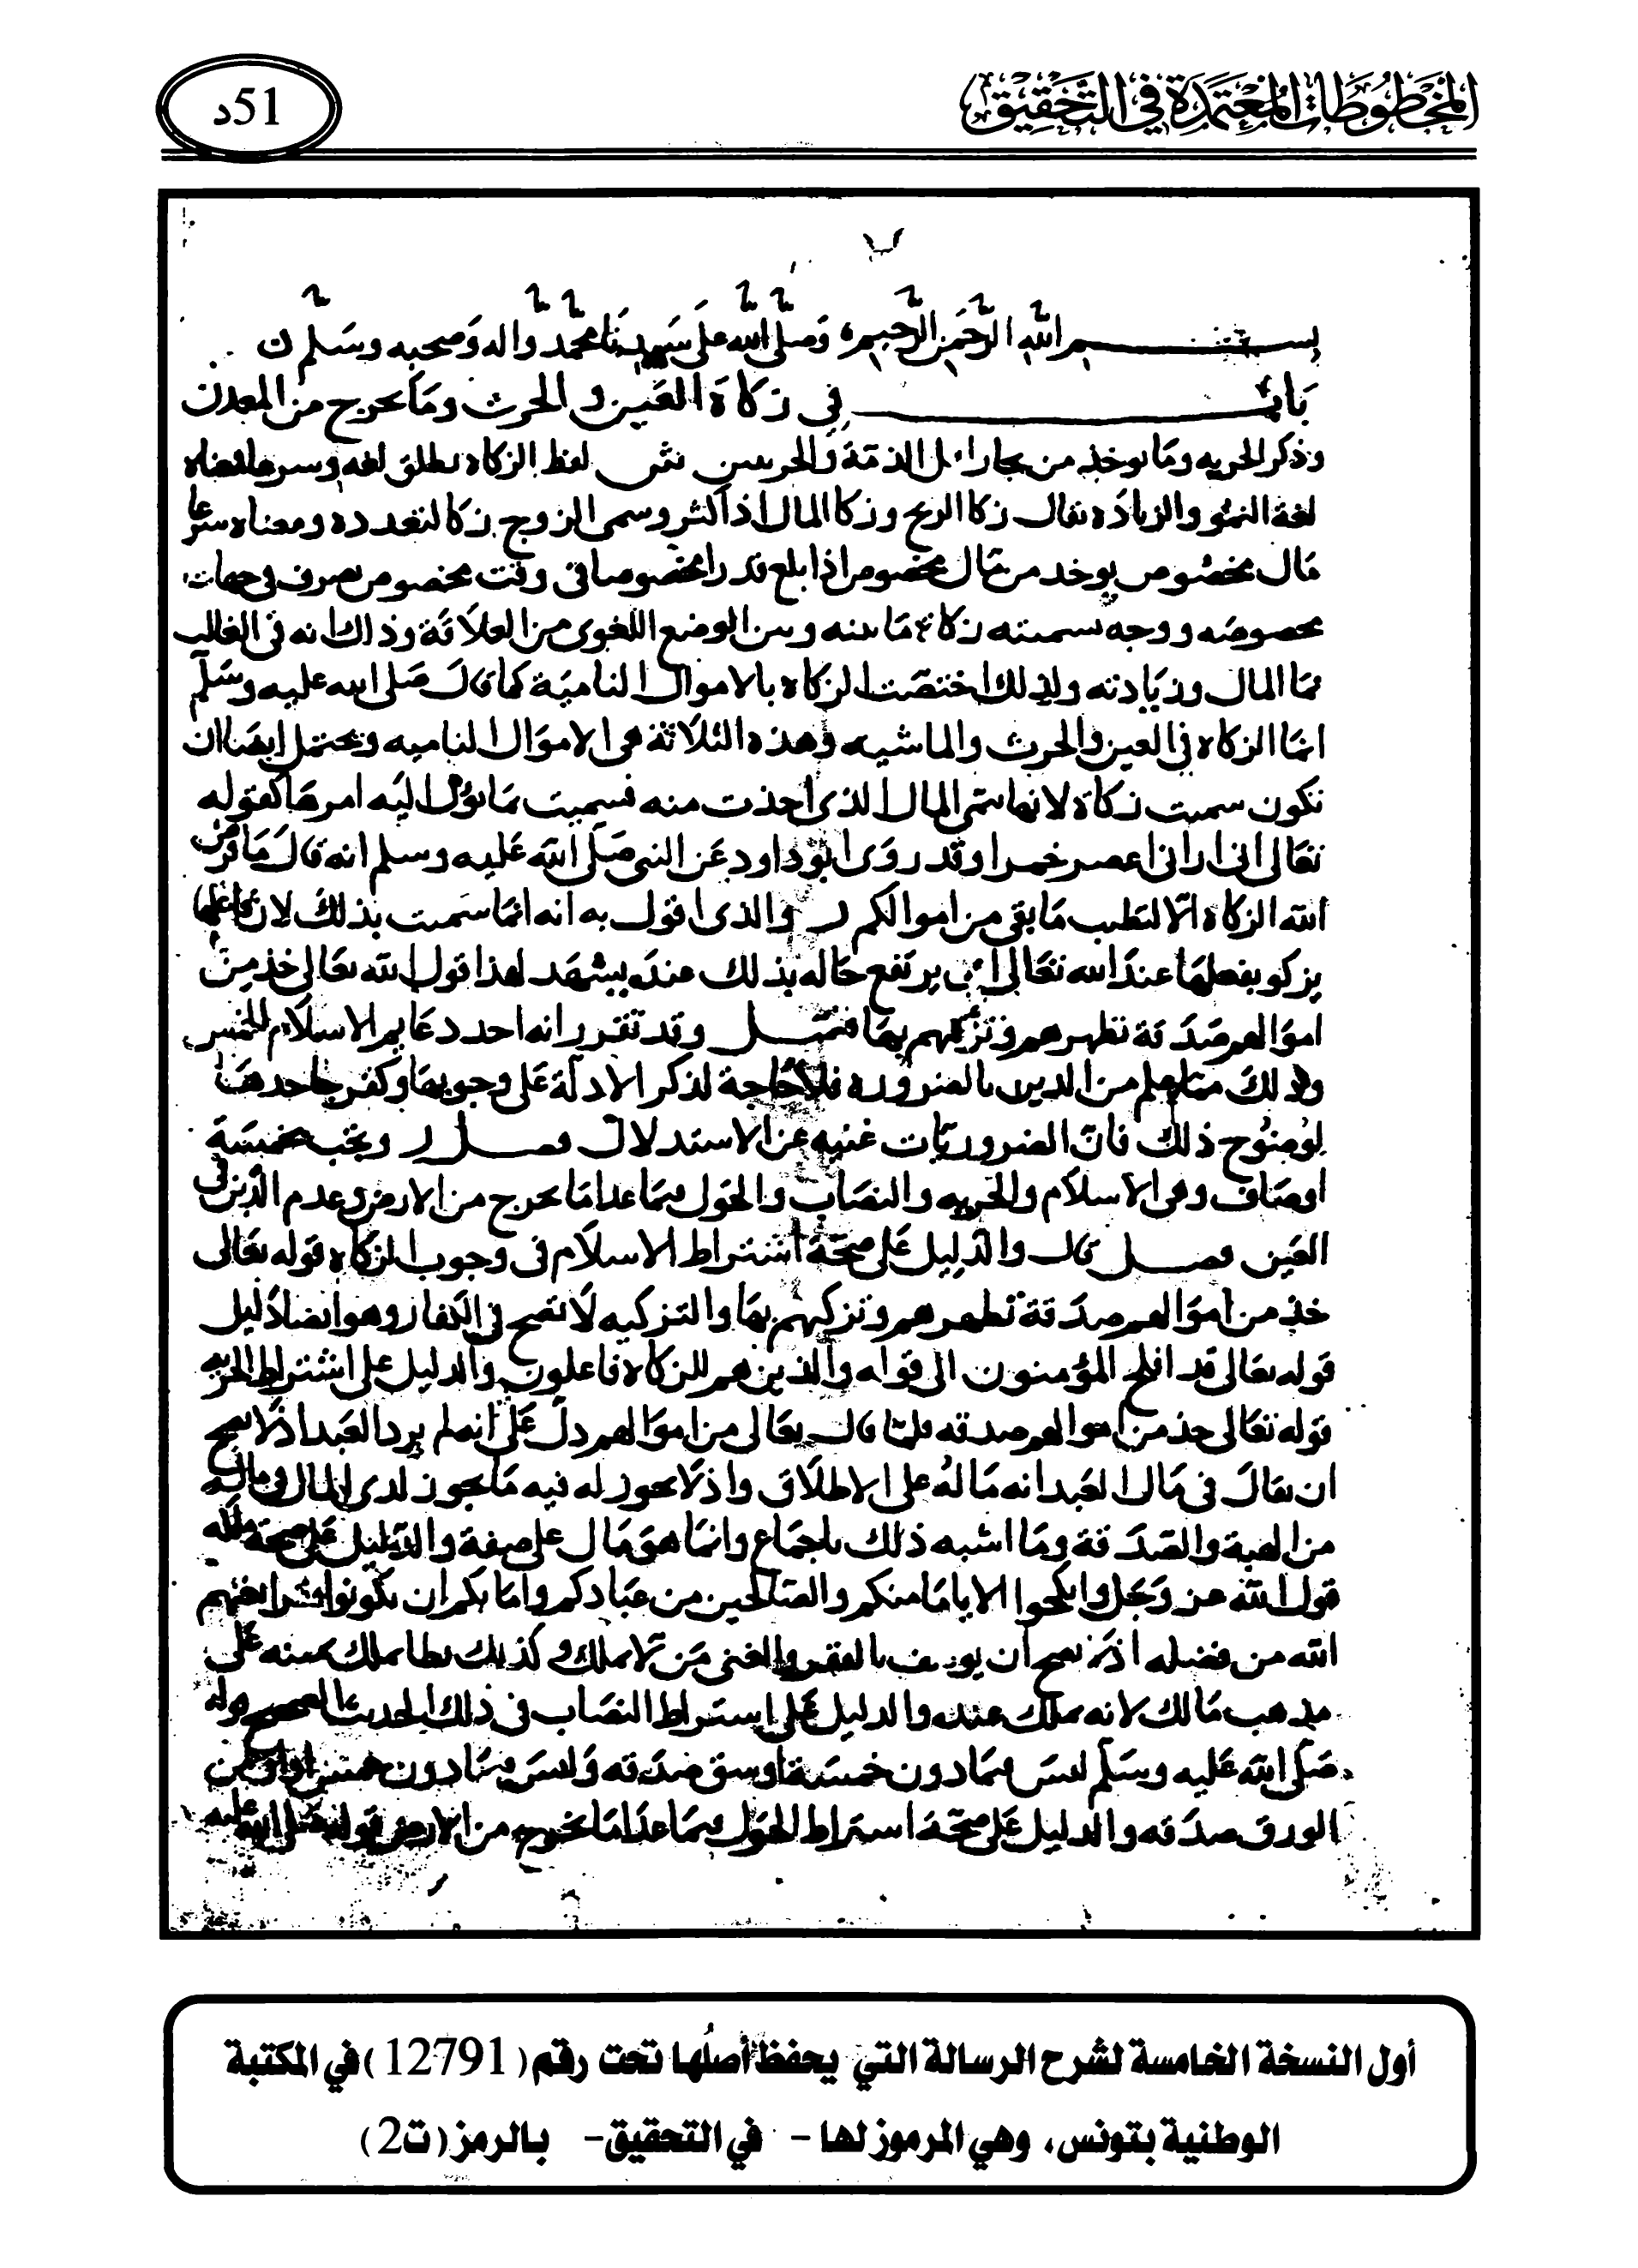 المخطوطات المعتمدة في التحقيق
51د
بسم الله الرحمن الرحيم وصلى الله على سيدنا محمد واله وصحبه وسلم
باب في زكاة العين والحرث وما يخرج من المعدن
وذكر الجزيه وما يوخذ من تجار اهل الذمة والحربيين لفظ الزكاه يطلق لغه وشرعا فمعناه
لغة النمو والزيادة يقال زكا الزرع وزكا المال اذا كثر وسمى الزوج زكا لتعدده ومعناه شرعا
مال مخصوص يوخد من مال مخصوص اذا بلغ قدرا مخصوصا في وقت مخصوص يصرف في جهات
مخصوصه ووجه تسميته زكاة ما بينه وبين الوضع اللغوى من العلاقة وذلك انه في الغالب
نما المال وزيادته ولذلك اختصت الزكاه بالاموال النامية كما قال صلى الله عليه وسلم
انما الزكاه في العين والحرث والماشيه وهذه الثلاثة هى الاموال الناميه ويحتمل ايضا ان
تكون سميت زكاة لانها تنمى المال الذى اخذت منه فسميت بما يؤل اليه امرها كقوله
تعالى انى ارانى اعصر خمرا وقد روى ابو داود عن النبى صلى الله عليه وسلم انه قال ما فرض
الله الزكاه الا لتطيب ما بقى من اموالكم والذى اقول به انه انما سميت بذلك لان فاعلها
يزكو بفعلها عند الله تعالى اي يرتفع حاله بذلك عنده يشهد لهذا قول الله تعالى خذ من
اموالهم صدقة تطهرهم وتزكيهم بها فصل وقد تقرر انه احد دعايم الاسلام الخمس
وذلك مما يعلم من الدين بالضروره فلا حاجة لذكر الادلة على وجوبها وكفر جاحدها
لوضوح ذلك فان الضروريات غنيه عن الاستدلال فصل وتجب بخمسة
اوصاف وهى الاسلام والحريه والنصاب والحول فيما عدا ما يخرج من الارض وعدم الدين في
العين فصل قال والدليل على صحة اشتراط الاسلام في وجوب الزكاه قوله تعالى
خذ من اموالهم صدقة تطهرهم وتزكيهم بها والتزكيه لا تصح في الكفار وهو ايضا دليل
قوله تعالى قد افلح المؤمنون الى قوله والذين هم للزكاه فاعلون والدليل على اشتراط الحريه
قوله تعالى خذ من اموالهم صدقه فلما قال تعالى من اموالهم دل على انه لم يرد العبد اذ لا يصح
ان يقال في مال العبد انه ماله على الاطلاق واذ لا يجوز له فيه ما يجوز لذى المال في ماله
من الهبة والصدقة وما اشبه ذلك باجماع وانما هو مال على صفة والدليل على صحة ملكه
قول الله عز وجل وانكحوا الايامى منكم والصالحين من عبادكم وامائكم ان يكونوا فقراء يغنهم
الله من فضله اذ لا يصح ان يوصف بالفقر والغنى من لا يملك وكذلك يطا بملك يمينه على
مذهب مالك لانه يملك عنده والدليل على اشتراط النصاب في ذلك الحديث الصحيح قوله
صلى الله عليه وسلم ليس فيما دون خمسة اوسق صدقه وليس فيما دون خمس اواق من
الورق صدقه والدليل على صحة اشتراط الحول فيما عدا ما يخرج من الارض قوله صلى الله عليه
أول النسخة الخامسة لشرح الرسالة التي يحفظ أصلها تحت رقم (12791) في المكتبة
الوطنية بتونس، وهي المرموز لها - في التحقيق - بالرمز (ت2)